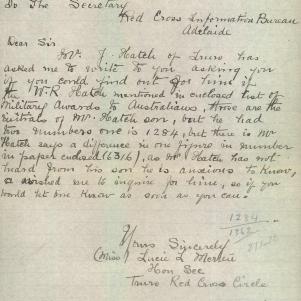 To The Secretary
Red Cross Information Bureau
Adelaide
Dear Sir
Mr. J. Hatch of Truro has
asked me to write to you asking you
if you could find out for him if
the W. R. Hatch mentioned in enclosed list of
Military Awards to Australians, those are the
initials of Mr. Hatch son, but he had
two numbers one is 1284, but there is Mr
Hatch says a difference in one figure in number
in paper enclosed (6316), as Mr Hatch has not
heard from his son he is anxious to know,
& wished me to inquire for him, so if you
would let me know as soon as you can.
1284
Yours Sincerely
(Miss) Lucie L
Hon Sec
Truro Red Cross Circle